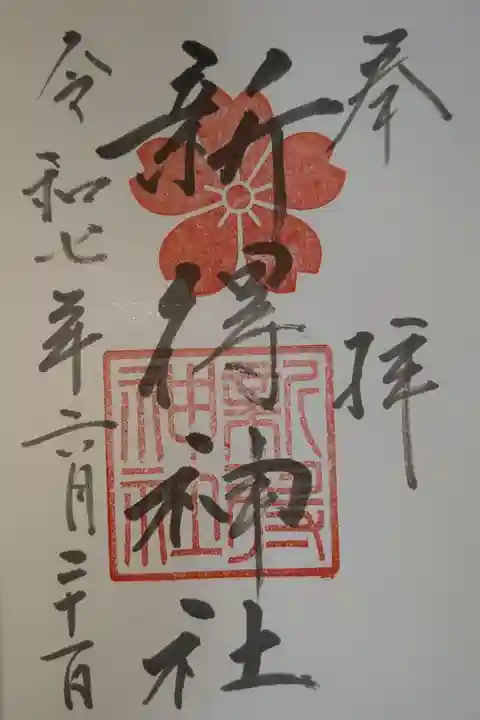 奉拝
新得神社
新得神社
令和七年六月二十一日